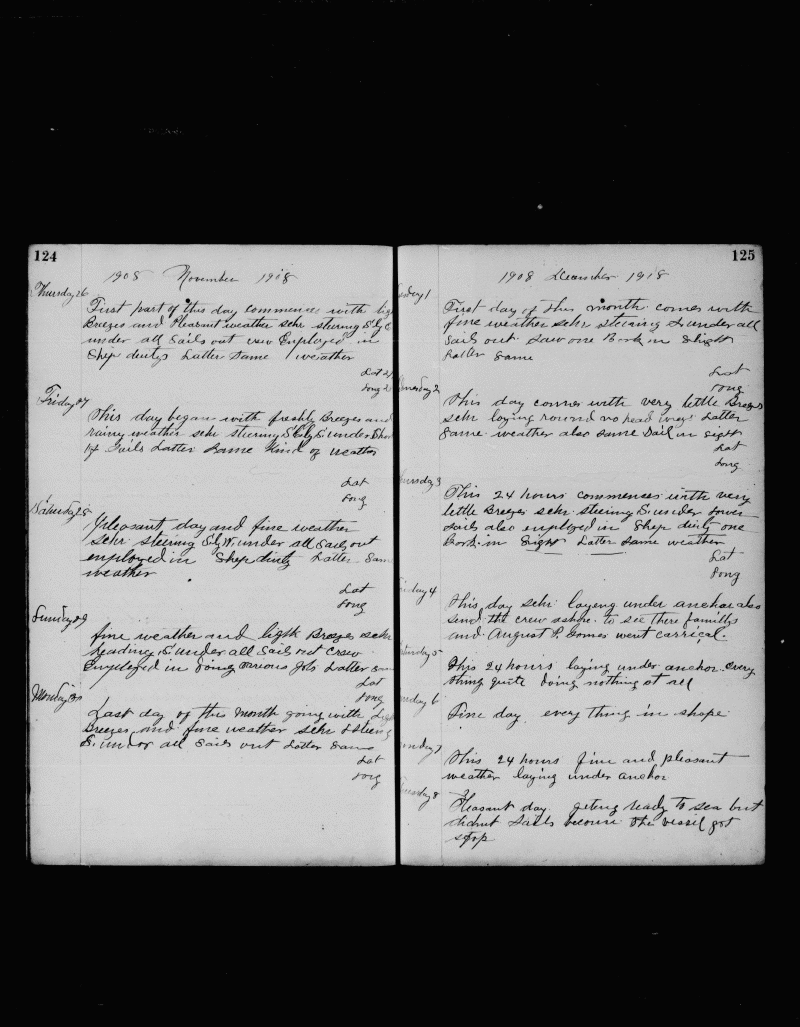 124
1908 November 1908
Thursday 26
First part of this day commences with lig
Breezes and Pleasant weather schr steering S by E
under all Sails out crew Employed in
Shep dutys Latter Same weather
Lat 2
Long 2
Friday 27
This day began with freshly Breezes and
rainy weather schr steering S by E under Shor
Sails Latter Same Kind of weather
Lat
Long
Saturday 28
Pleasant day and fine weather
Schr steering S by W under all Sails out
employed in Shep duty Latter Same
weather
Lat
Long
Sunday 29
fine weather and light Breezes schr
heading S under all Sails out crew
Employed in doing various Jobs Latter Sam
Lat
Long
Monday 30
Last day of this Month going with Ligh
Breezes and fine weather schr Steering
S. under all Sails out Latter Same
Lat
Long
125
1908 December 1908
esday 1
First day of this month comes with
fine weather schr steering S under all
Sails out Saw one Bark in Sight
Latter Same
Lat
Long
dnesday 2
This day comes with very lettle Breezes
schr laying round no head way Latter
Same weather also same Sail in sight
Lat
Long
hursday 3
This 24 hours commences with very
lettle Breezes schr steering S. under Lower
Sails also employed in Shep duty one
Bark in Sight Latter Same weather
Lat
Long
riday 4
This day schr layeng under anchor also
send the crew ashore to see there familys
and August P. Gomes went carrical.
aturday 5
This 24 hours laying under anchor every
thing quite doing nothing at all
unday 6
Fine day every thing in shape
onday 7
This 24 hours fine and pleasant
weather laying under anchor
uesday 8
Pleasant day geting ready to sea but
didnut Sails because the vessel got